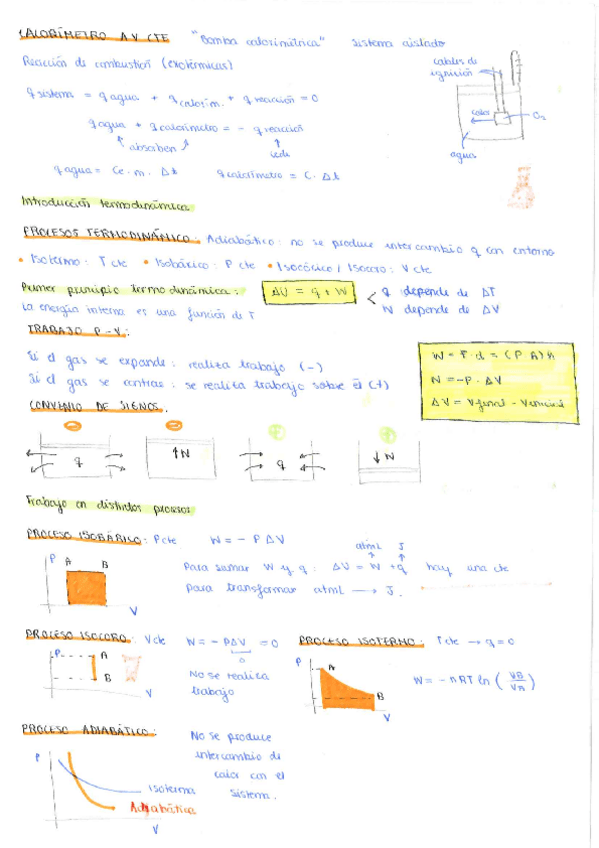 CALORÍMETRO A V CTE "Bomba calorimétrica" Sistema aislado
Reacción de combustión (exotérmicas)
q sistema = q agua + q calorím. + q reacción = 0
q agua + q calorímetro = - q reacción
absorben cede
q agua = Ce · m · Δt q calorímetro = C · Δt
cables de ignición
calor
O2
agua
Introducción termodinámica
PROCESOS TERMODINÁMICO: Adiabático: no se produce intercambio q con entorno
• Isotermo: T cte • Isobárico: P cte • Isocórico / Isocoro: V cte
Primer principio termodinámica: ΔU = q + W
q depende de ΔT
W depende de ΔV
La energía interna es una función de T
TRABAJO P-V:
Si el gas se expande: realiza trabajo (-)
Si el gas se contrae: se realiza trabajo sobre él (+)
W = F · d = (P · A) h
W = -P · ΔV
ΔV = Vfinal - Vinicial
CONVENIO DE SIGNOS.
- - + +
q W q W
Trabajo en distintos procesos
PROCESO ISOBÁRICO: P cte W = - P ΔV
atmL J
Para sumar W y q: ΔU = W + q hay una cte
para transformar atmL → J.
P A B V
PROCESO ISOCORO: V cte W = - PΔV = 0
0
No se realiza
trabajo
P A B V
PROCESO ISOTERMO: T cte → q = 0
W = - nRT ln (VB/VA)
P A B V
PROCESO ADIABÁTICO:
No se produce
intercambio de
calor con el
sistema.
P
Isoterma
Adiabática
V